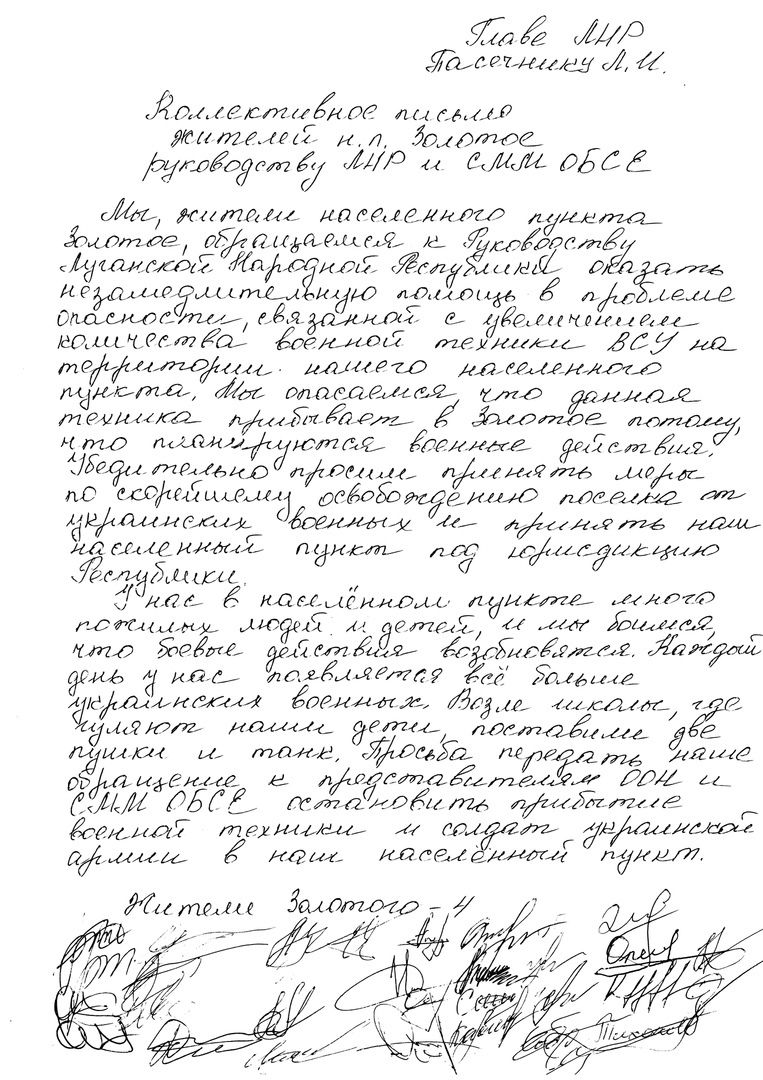 Главе ЛНР
Пасечнику Л.И.
Коллективное письмо
жителей н.п. Золотое
руководству ЛНР и СММ ОБСЕ
Мы, жители населенного пункта
Золотое, обращаемся к Руководству
Луганской Народной Республики оказать
незамедлительную помощь в проблеме
опасности, связанной с увеличением
количества военной техники ВСУ на
территории нашего населенного
пункта. Мы опасаемся, что данная
техника прибывает в Золотое потому,
что планируются военные действия.
Убедительно просим принять меры
по скорейшему освобождению поселка от
украинских военных и принять наш
населенный пункт под юрисдикцию
Республики.
У нас в населённом пункте много
пожилых людей и детей, и мы боимся,
что боевые действия возобновятся. Каждый
день у нас появляется всё больше
украинских военных. Возле школы, где
гуляют наши дети, поставили две
пушки и танк. Просьба передать наше
обращение к представителям ООН и
СММ ОБСЕ остановить прибытие
военной техники и солдат украинской
армии в наш населённый пункт.
Жители Золотого-4